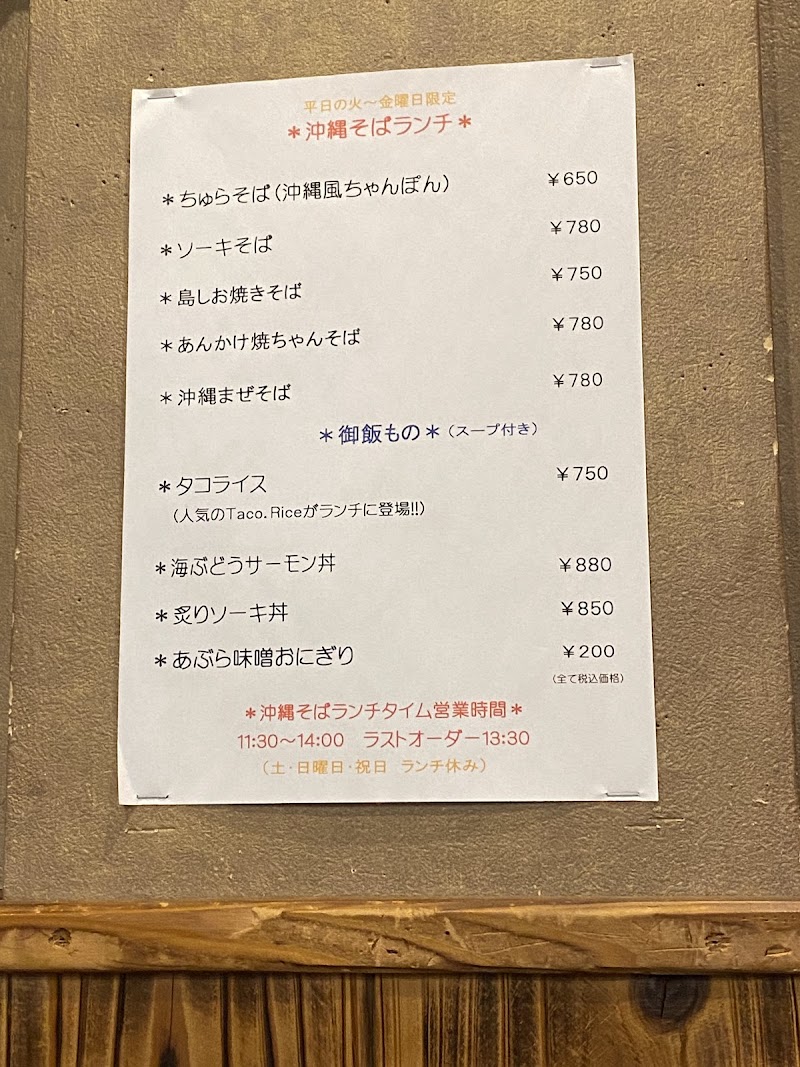 平日の火～金曜日限定
＊沖縄そばランチ＊
＊ちゅらそば(沖縄風ちゃんぽん) ￥650
＊ソーキそば ￥780
＊島しお焼きそば ￥750
＊あんかけ焼ちゃんそば ￥780
＊沖縄まぜそば ￥780
＊御飯もの＊(スープ付き)
＊タコライス ￥750
(人気のTaco.Riceがランチに登場!!)
＊海ぶどうサーモン丼 ￥880
＊炙りソーキ丼 ￥850
＊あぶら味噌おにぎり ￥200
(全て税込価格)
＊沖縄そばランチタイム営業時間＊
11:30～14:00 ラストオーダー13:30
(土・日曜日・祝日 ランチ休み)